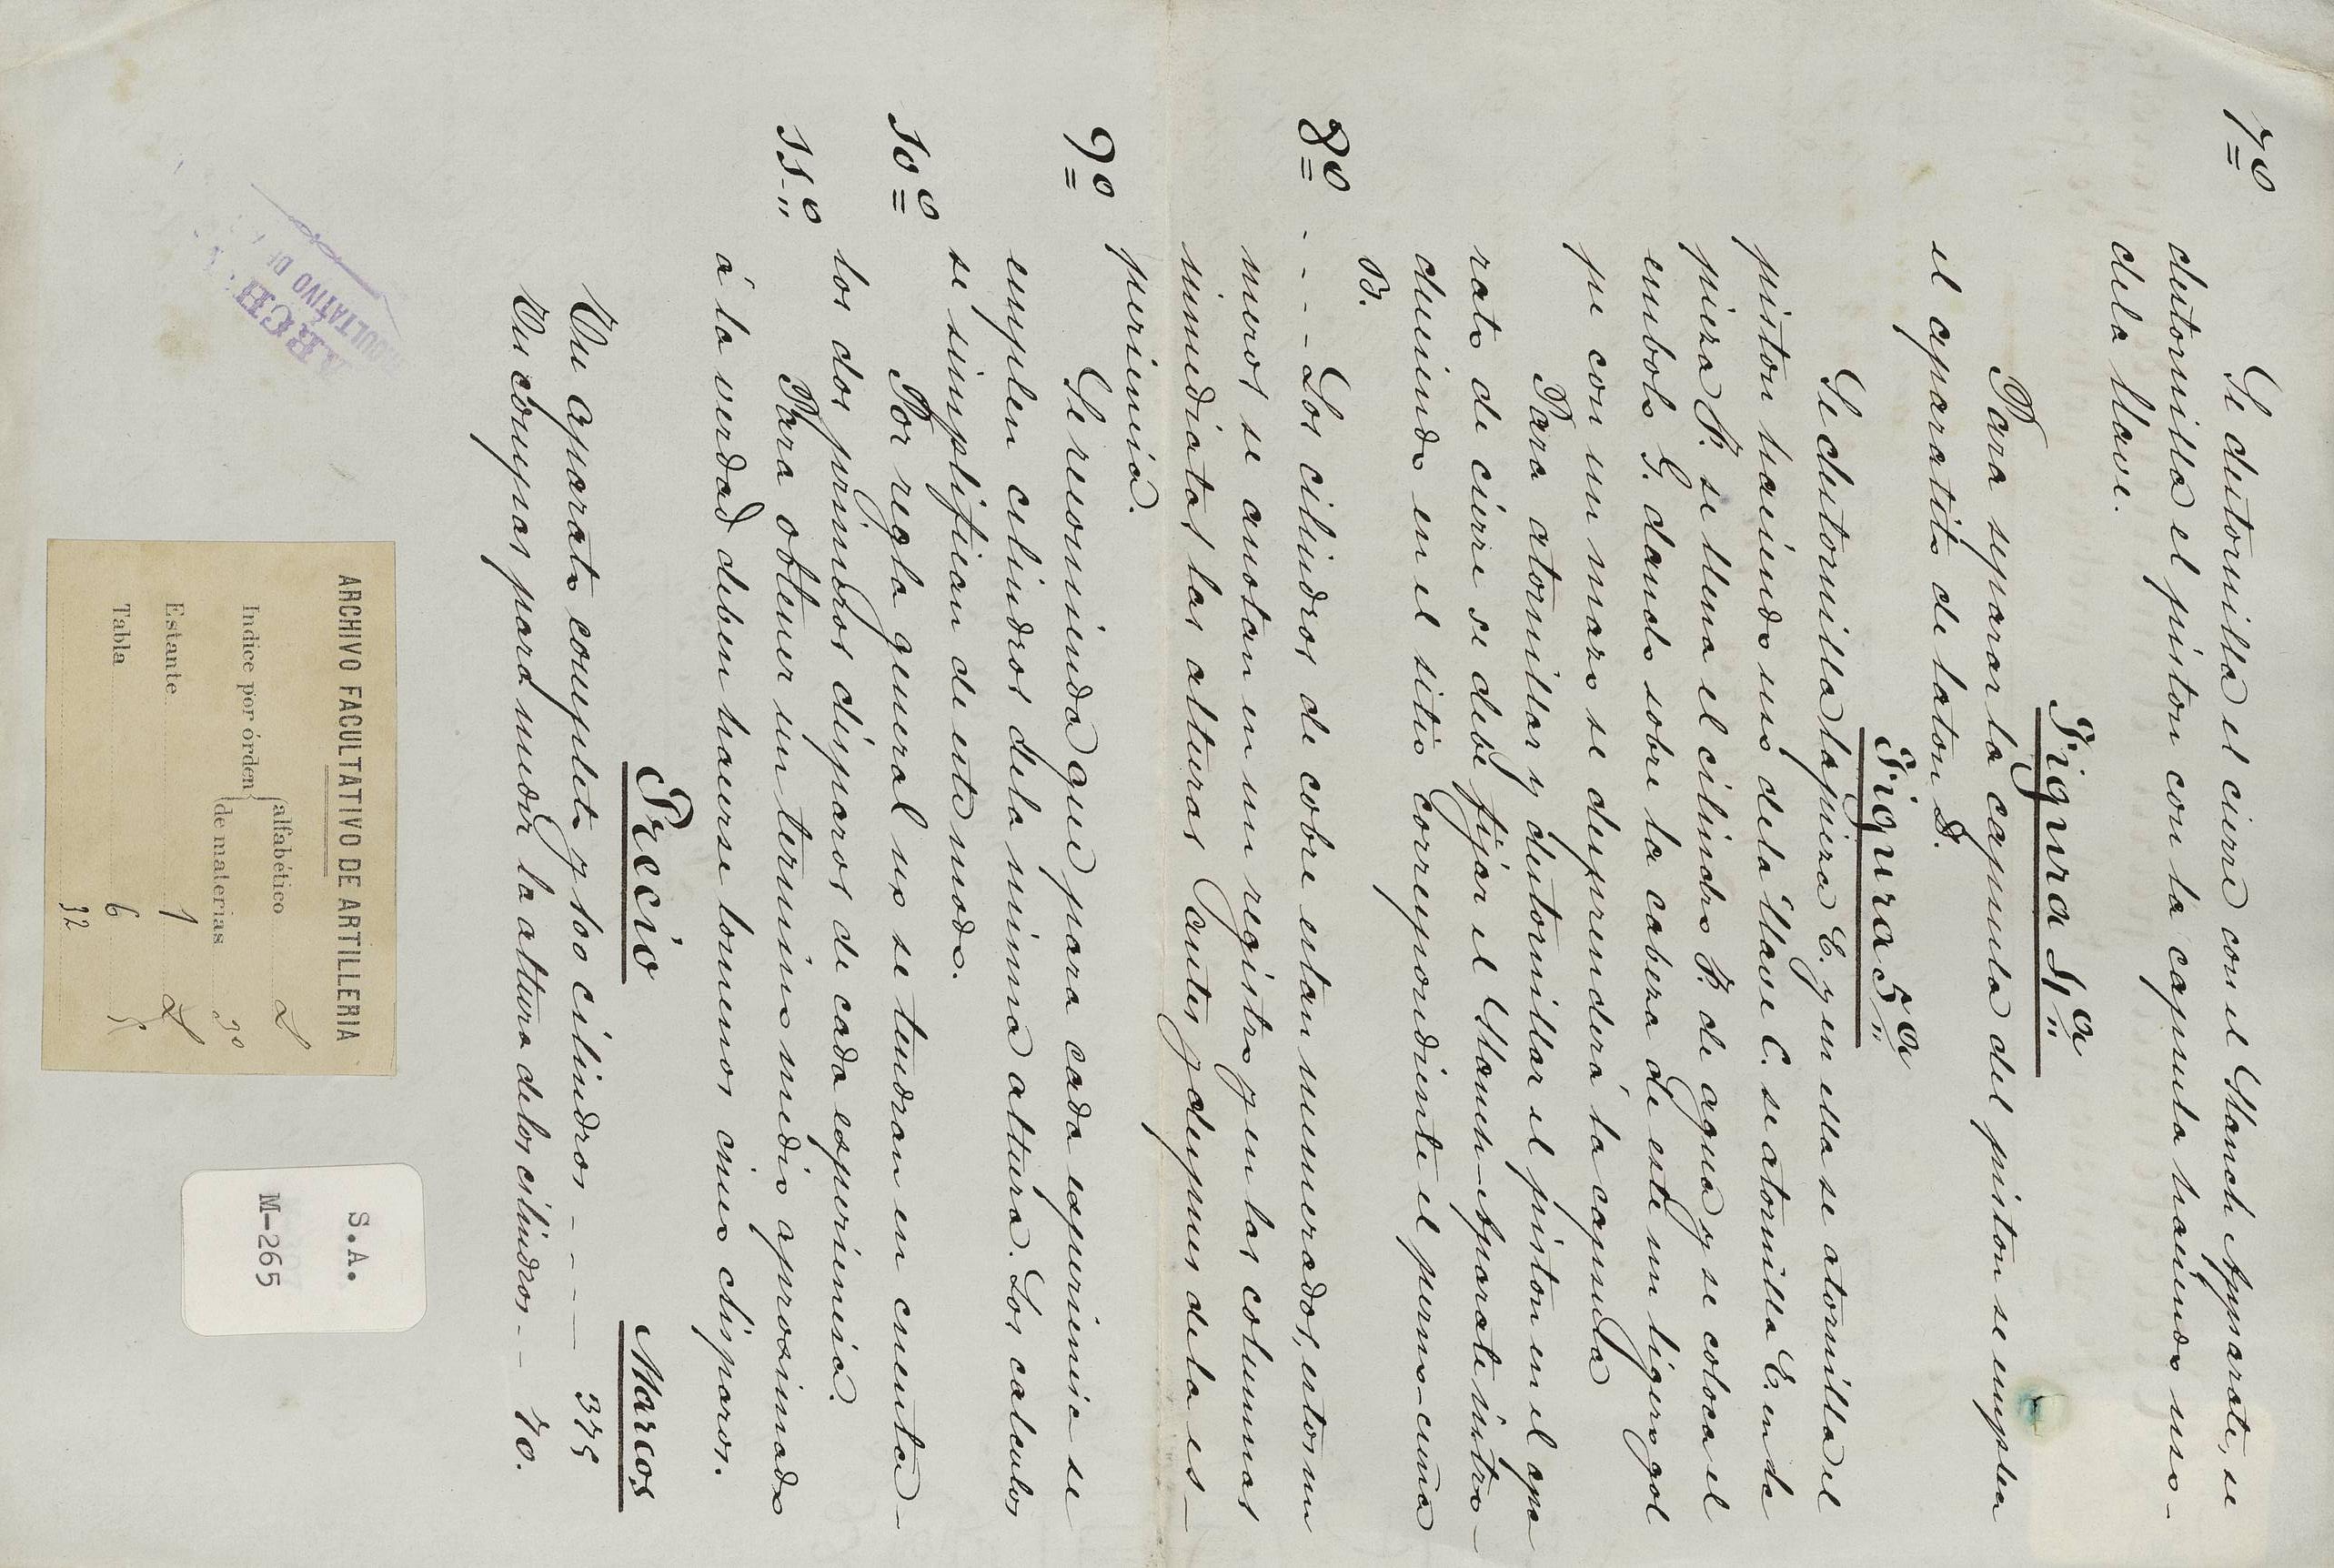 7º Se destornilla el cierre con el Stauch Apparate, se
destornilla el piston con la capsula haciendo uso-
dela llave.
Figura 4ª
Para separar la capsula del piston se emplea
el aparatito de laton D.
Figura 5ª
Se destornilla la pieza E. y en ella se atornilla el
piston haciendo uso dela llave C. se atornilla E. en la
pieza F. se llena el cilindro F. de agua y se coloca el
embolo G. dando sobre la cabeza de este un ligero gol
pe con un mazo se desprenderá la capsula
Para atornillar y destornillar el piston en el apa
rato de cierre se debe fijar el Stauch-Aparate intro-
duciendo en el sitio correspondiente el perno-cuña
B.
8º - - - Los cilindros de cobre estan numerados, estos nu
meros se anotan en un registro y en las columnas
inmediatas las alturas antes y despues de la es-
periencia.
9º Se recomienda que para cada esperiencia se
emplen cilindros dela misma altura. Los calculos
se simplifican de este modo.
10º Por regla general no se tendran en cuenta-
los dos primeros disparos de cada esperiencia.
11º Para obtener un termino medio aproximado
á la verdad deben hacerse lomenos cinco disparos.
Precio Marcos
Un aparato completo y 100 cilindros - - - 375
Un compas para medir la altura delos cilindros - - 70.
ARCHIVO FACULTATIVO DE ARTILLERIA
Indice por órden { alfabético L
de materias 30
Estante 1 L
Tabla 6
32
S.A.
M-265